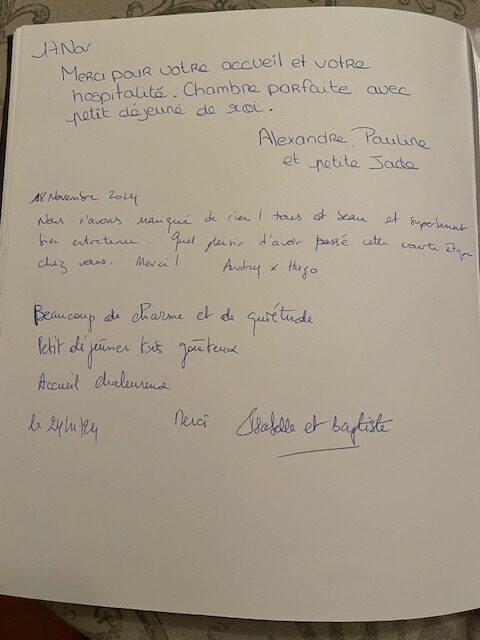 17.Nov
Merci pour votre accueil et votre
hospitalité. Chambre parfaite avec
petit déjeuné de roi.
Alexandre, Pauline
et petite Jade
18 Novembre 2024
Nous n'avons manqué de rien! tous est beau et superbement
bien entretenu. Quel plaisir d'avoir passé cette courte étape
chez vous. Merci! Audrey x Hugo
Beaucoup de charme et de quiétude
Petit déjeuner très goûteux
Accueil chaleureux
le 24/11/24 Merci Isabelle et Baptiste